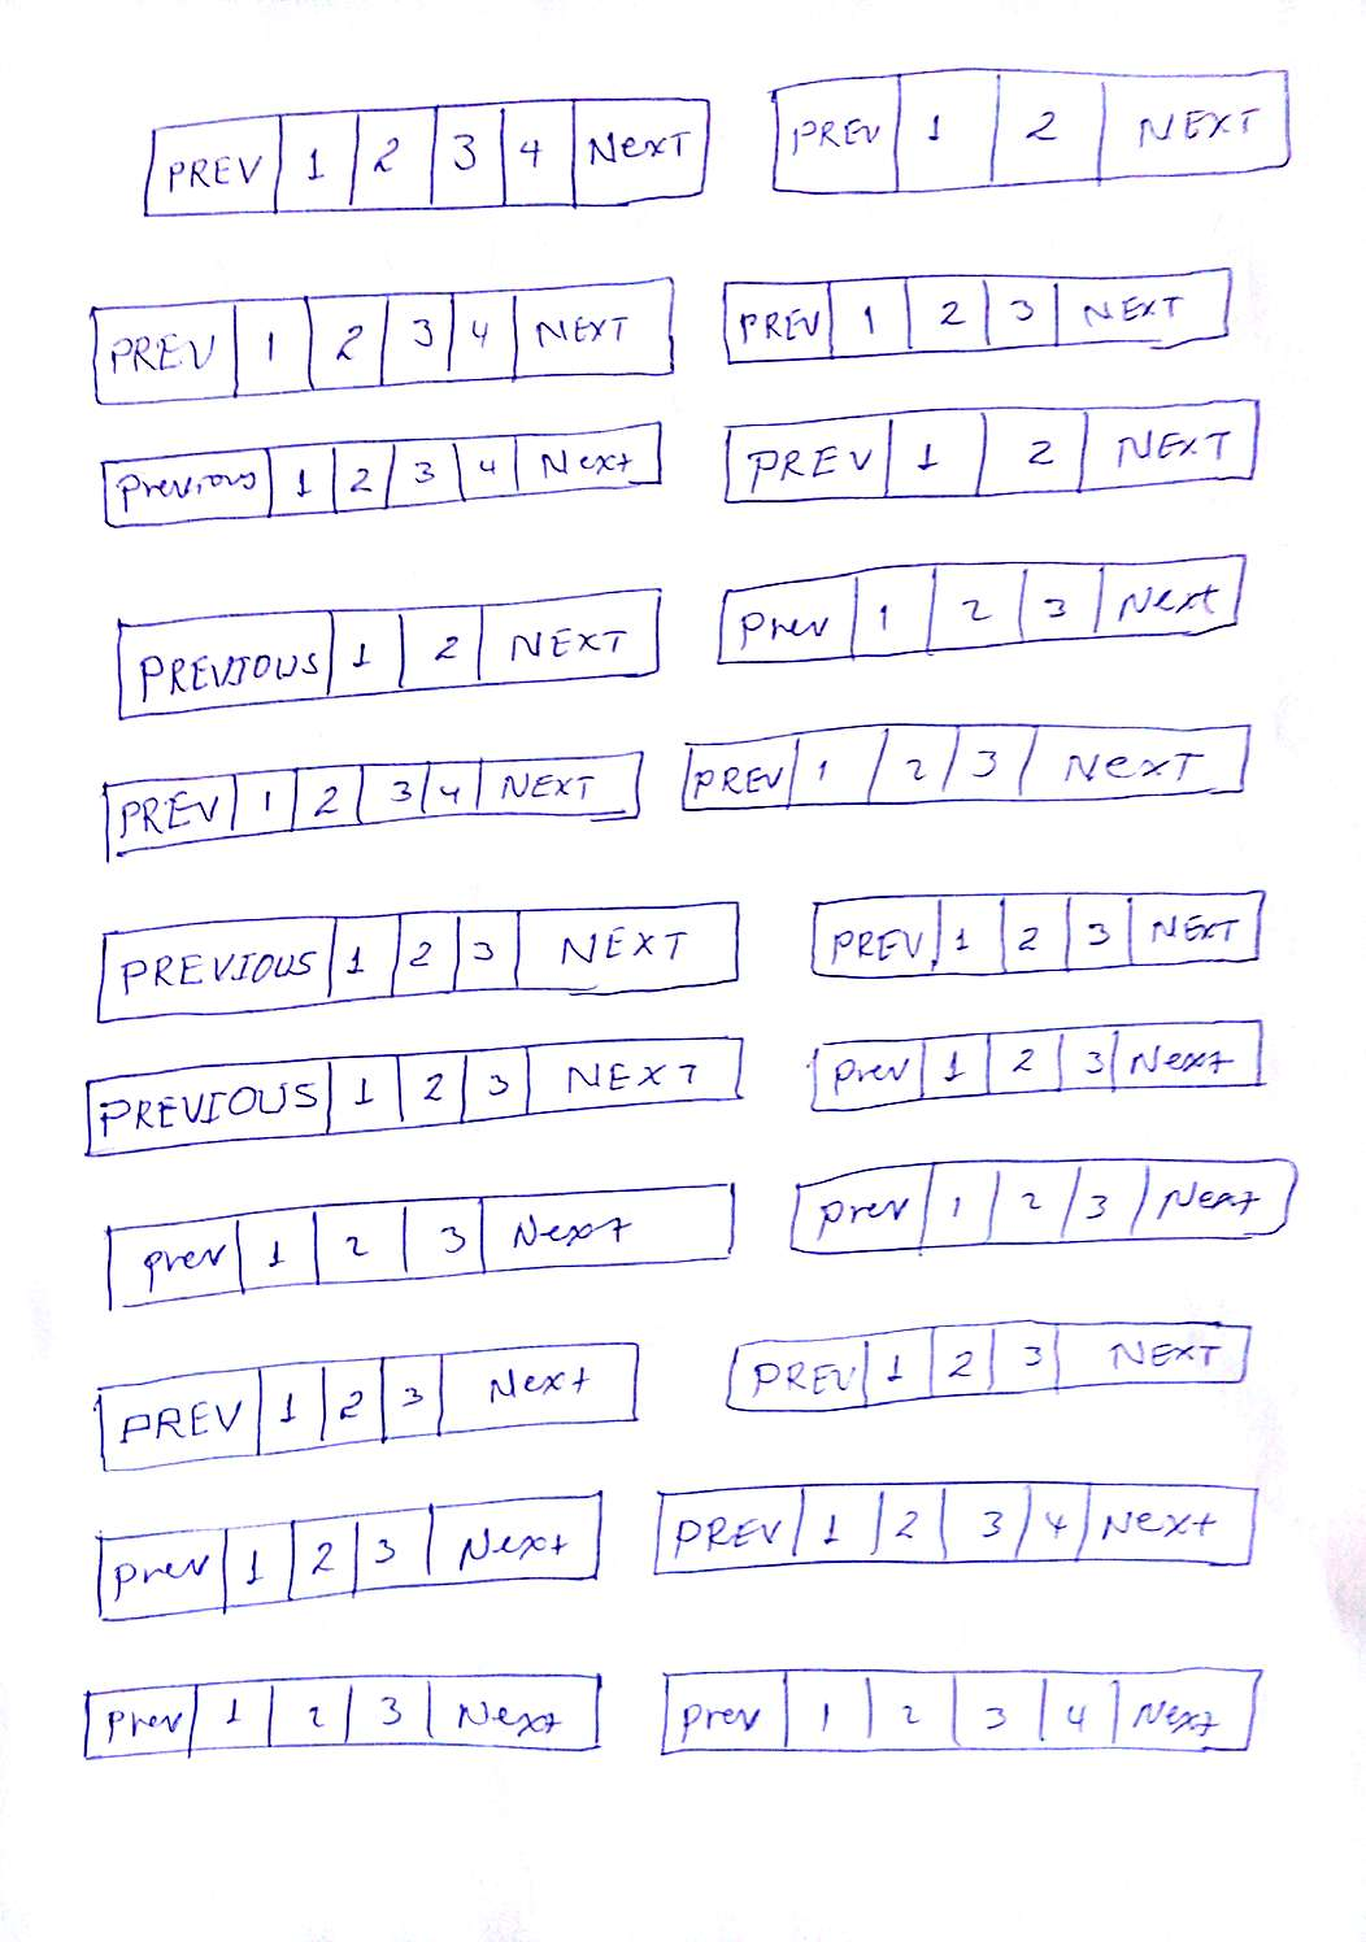 PREV 1 2 3 4 NexT
PREV 1 2 NEXT
PREV 1 2 3 4 NEXT
PREV 1 2 3 NEXT
Previous 1 2 3 4 Next
PREV 1 2 NEXT
PREVIOUS 1 2 NEXT
Prev 1 2 3 Next
PREV 1 2 3 4 NEXT
PREV 1 2 3 NexT
PREVIOUS 1 2 3 NEXT
PREV 1 2 3 NEXT
PREVIOUS 1 2 3 NEXT
Prev 1 2 3 Next
prev 1 2 3 Next
prev 1 2 3 Next
PREV 1 2 3 Next
PREV 1 2 3 NEXT
prev 1 2 3 Next
PREV 1 2 3 4 Next
Prev 1 2 3 Next
prev 1 2 3 4 Next